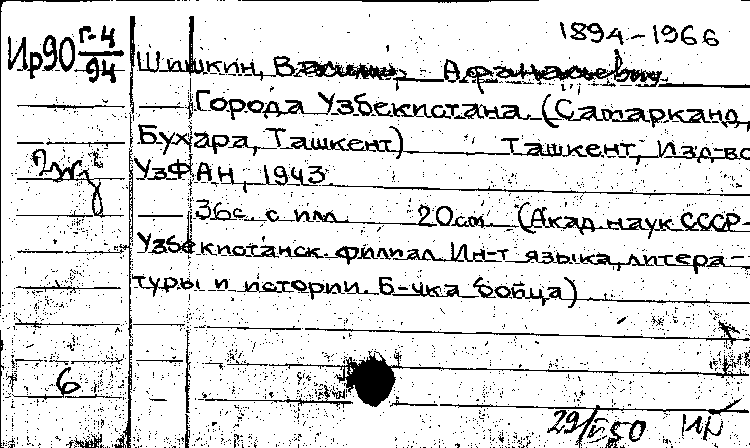 1894-1966
Ир90 Г-4/94
Шишкин, Василий Афанасьевич
Города Узбекистана. (Самарканд,
Бухара, Ташкент) Ташкент, Изд-во
УзФАН, 1943.
36с. с илл. 20см. (Акад. наук СССР-
Узбекистанск. филиал Ин-т языка, литера-
туры и истории. Б-чка бойца)
6
29/V 50